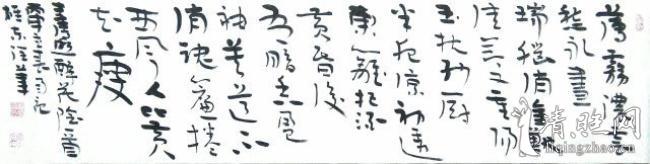 薄霧濃雲
愁永晝
瑞腦消金獸
佳節又重陽
玉枕紗厨
半夜凉初透
東籬把酒
黄昏後
有暗香盈
袖莫道不
消魂簾捲
西風人比黄
花瘦
李清照醉花陰